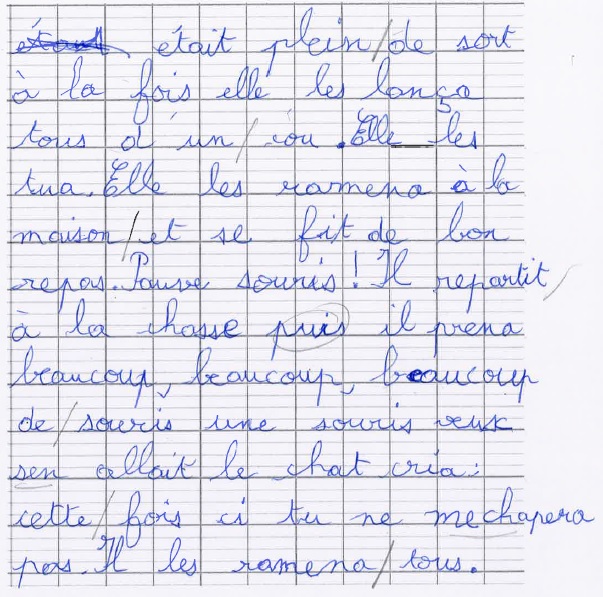 était plein de sort
à la fois elle les lança
tous d'un cou. Elle les
tua. Elle les ramena à la
maison et se fit de bon
repas. Pauve souris ! Il repartit
à la chasse puis il prena
beaucoup, beaucoup, beaucoup
de souris une souris veux
sen allait le chat cria :
cette fois ci tu ne mechapera
pas. Il les ramena tous.